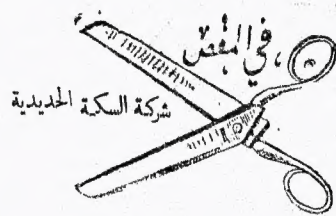 في المقص
شركة السكة الحديدية